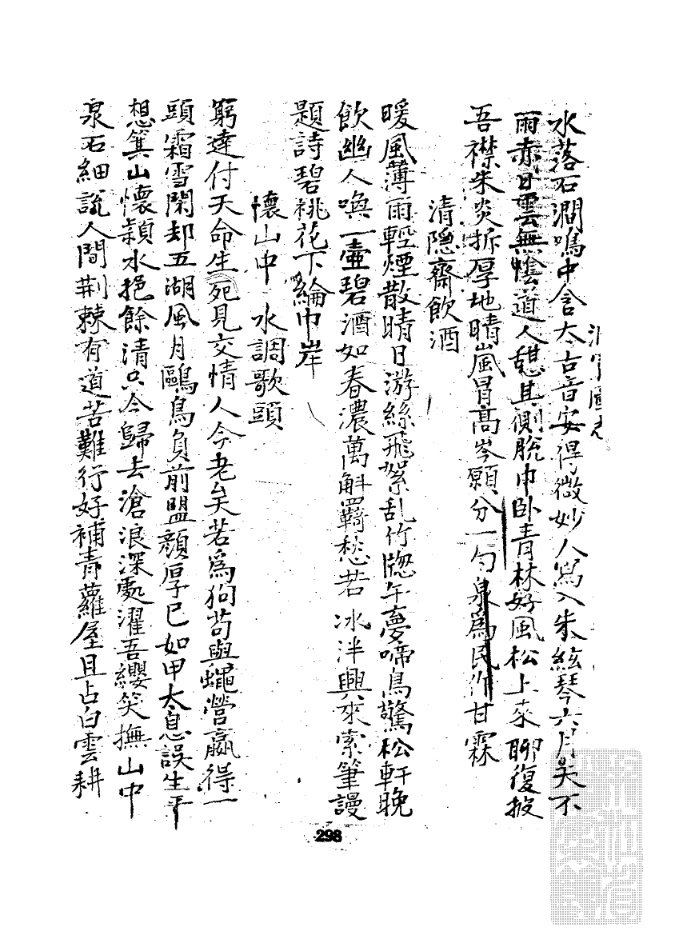 水落石澗鳴中含太古音安得微妙人寫入朱絃琴六月吴不
雨赤日雲無陰道人憩其側脫巾卧青林好風松上來聊復披
吾襟朱炎拆厚地晴嵐冒高岑願分一勺泉為民作甘霖
清隐齋飲酒
暖風薄雨輕煙散晴日游絲飛絮乱竹牕午夢啼鳥驚松軒晚
飲幽人喚一壷碧酒如春濃萬斛羈愁若冰泮興來索筆謾
題詩碧桃花下綸巾岸
懷山中 水調歌頭
窮達付天命生死見交情人今老矣若為狗苟與蠅營贏得一
頭霜雪閑却五湖風月鷗鳥負前盟顔厚已如甲太息誤生平
想箕山懷潁水挹餘清只今歸去滄浪深處濯吾纓笑撫山中
泉石細說人間荆棘有道苦難行好補青蘿屋且占白雲耕
298